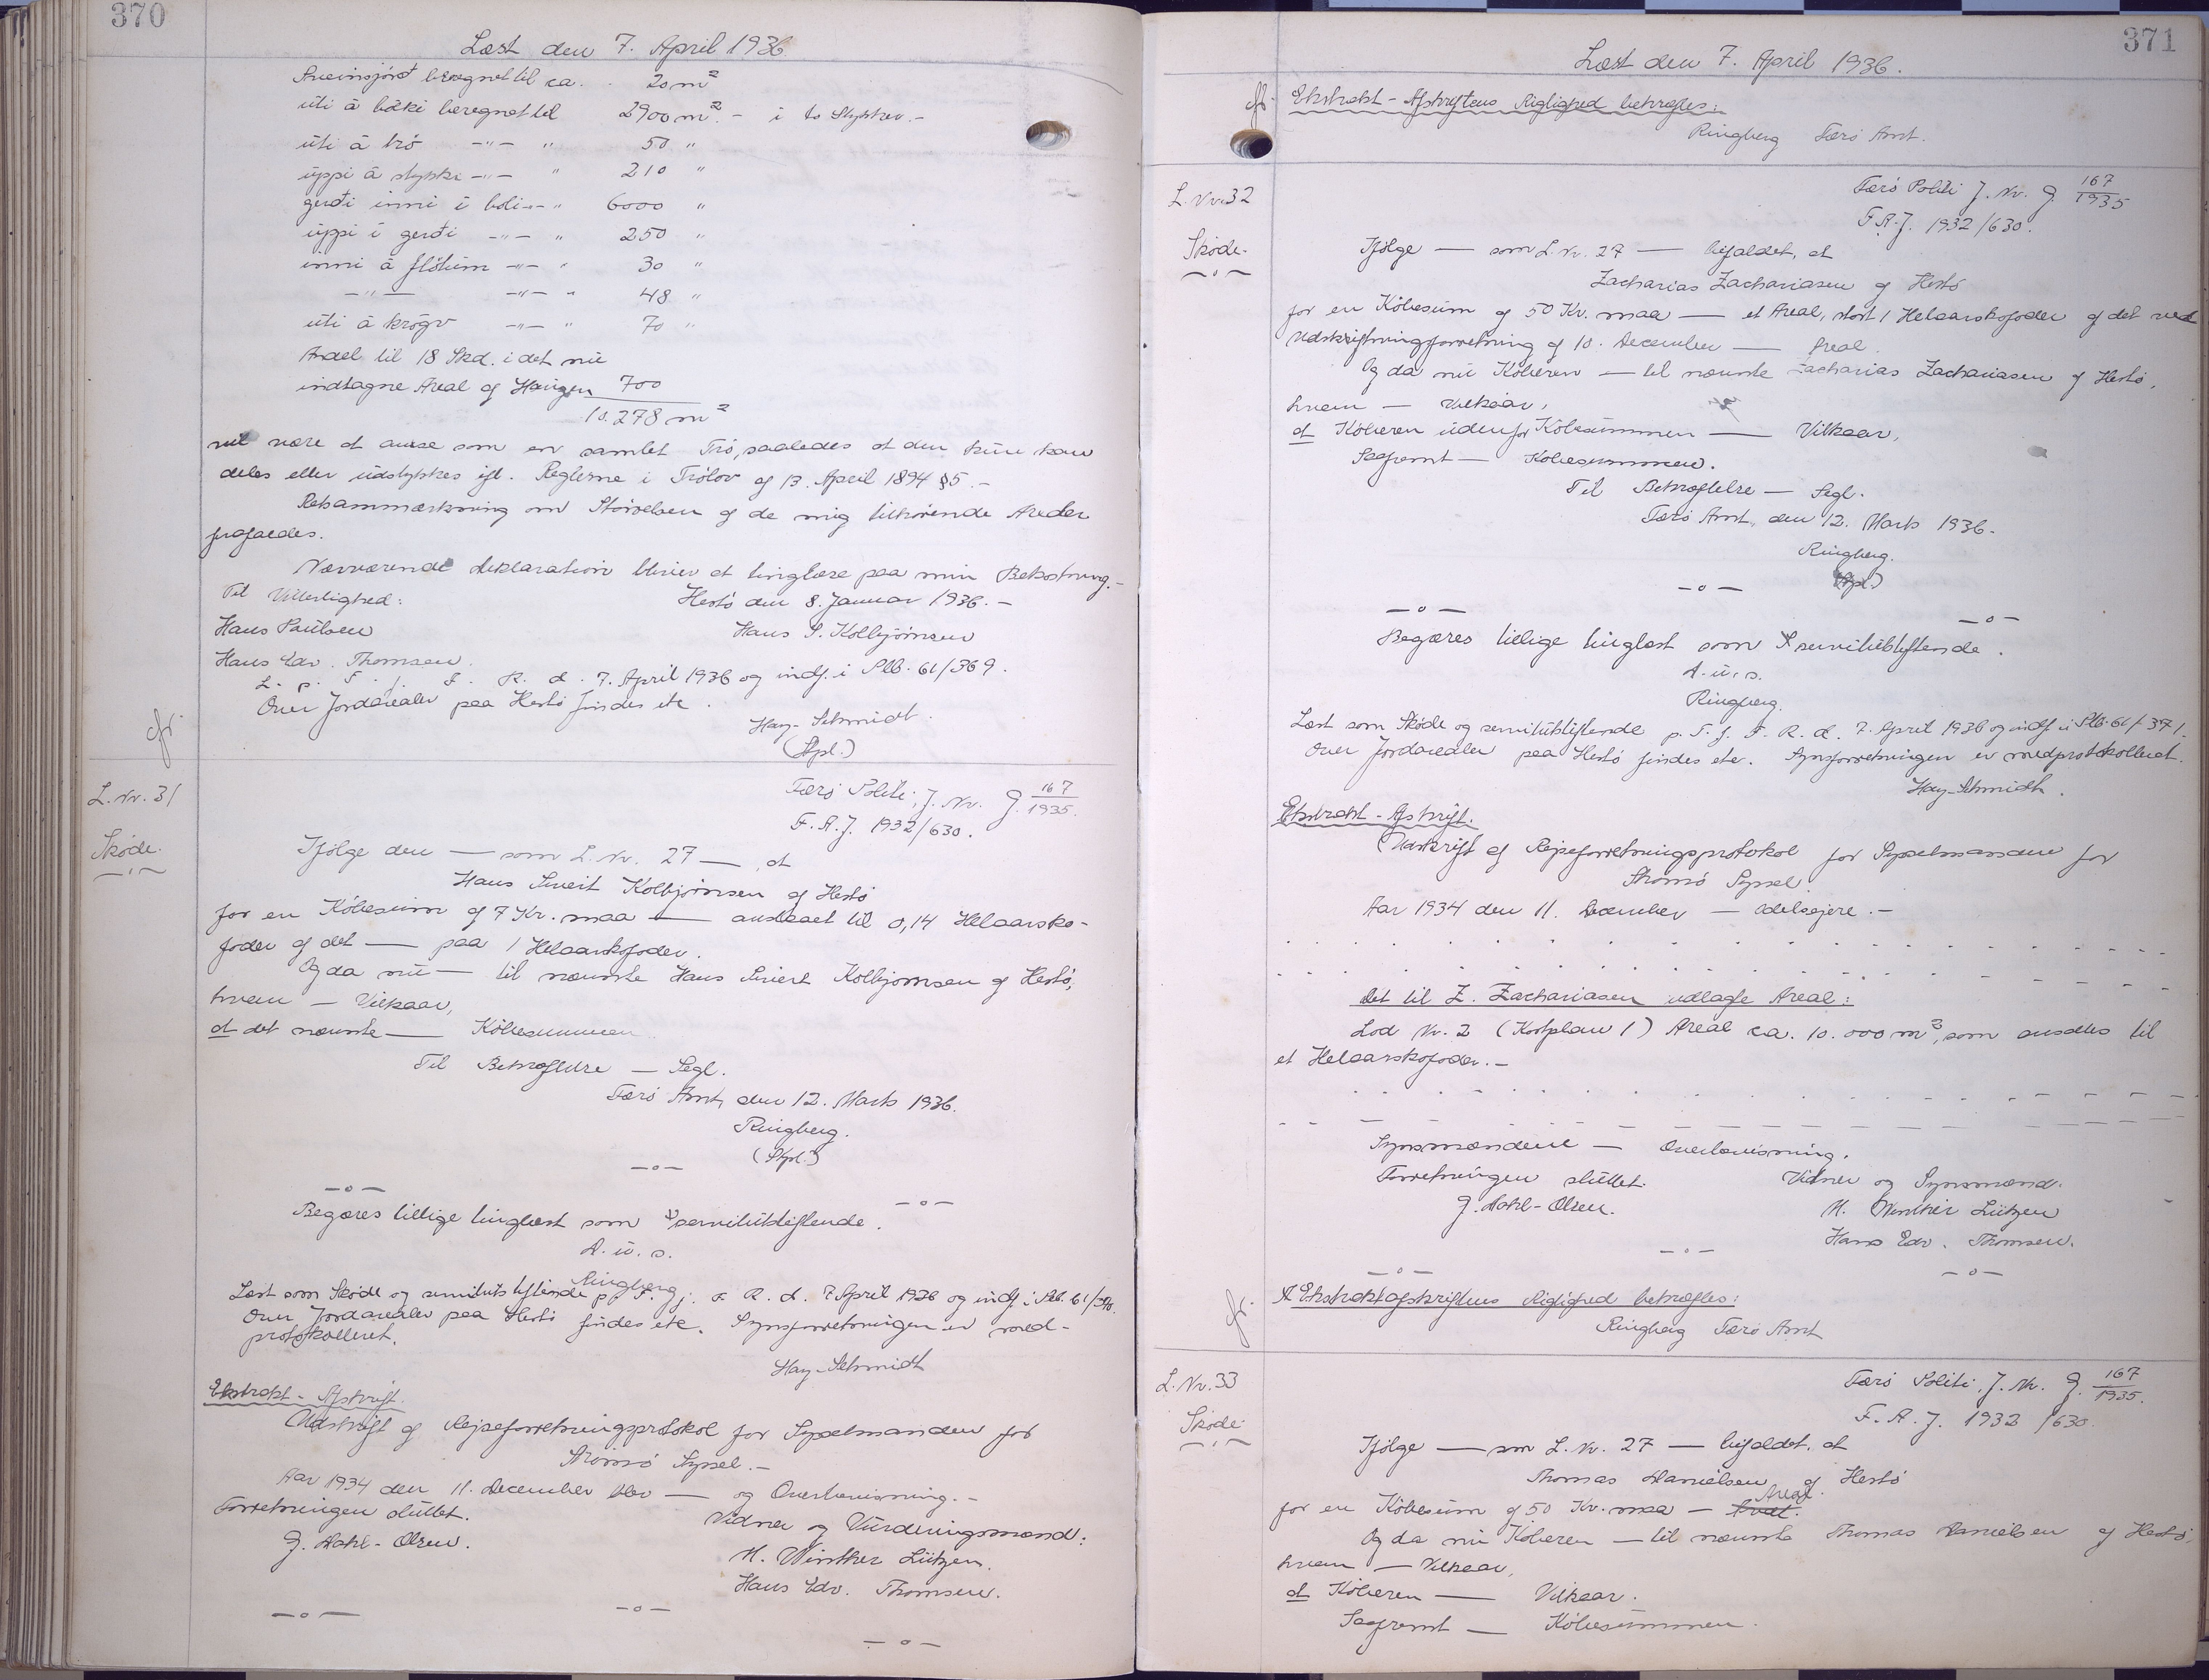 370
Læst den 7. April 1936
Sveinsjørð beregnet til ca. 20 m²
úti á bakki beregnet til 2900 m². - i to Stykker. -
úti á trö -"- " 50 "
uppi á stykki -"- " 210 "
gerði inni í bøli -"- " 6000 "
uppi í gerði -"- " 250 "
inni á flötum -"- " 30 "
-"- -"- " 48 "
úti á krógv -"- " 70 "
Andel til 18 Skd. i det nu
indtagne Areal af Haugen 700
10.278 m²
vil være at anse som en samlet Trö, saaledes at den kun kan
deles eller udstykkes ifl. Reglerne i Trölov af 13. April 1894 §5. -
Retsanmærkning om Störrelsen af de mig tilhörende Arealer
frafaldes.
Nærværende Deklaration bliver at tinglæse paa min Bekostning. -
Til Vitterlighed: Hestö den 8. Januar 1936. -
Hans Paulsen Hans S. Kolbjörnsen
Hans Edv. Thomsen.
L. p. T. f. F. R. d. 7. April 1936 og indf. i Plb. 61/369.
Over Jordarealer paa Hestö findes ete.
Hay-Schmidt.
(Stpl.)
fr.
L. Nr. 31
Skøde.
Færö Politi, J. Nr. G. 167/1935.
F. A. J. 1932/630.
Ifölge den — som L. Nr. 27 —, at
Hans Sivert Kolbjörnsen af Hestö
for en Köbesum af 7 Kr. maa — anslaaet til 0,14 Helaarsko-
foder af det — paa 1 Helaarskofoder.
Og da nu — til nævnte Hans Sivert Kolbjörnsen af Hestö,
hvem — Vilkaar,
at det nævnte — Köbesummen
Til Bekræftelse — Segl.
Færö Amt, den 12. Marts 1936.
Ringberg.
(Stpl.)
—o—
—o— —o—
Begæres tillige tinglæst som servitutstiftende.
D. u. s.
Ringberg
Læst som Skøde og servitutstiftende p. T. f. F. R. d. 7 April 1936 og indf. i Plb. 61/370.
Over Jordarealer paa Hestö findes ete. Synsforretningen er med-
protokolleret.
Hay-Schmidt
Ekstrakt-Afskrift.
Udskrift af Rejseforretningsprotokol for Sysselmanden for
Strömö Syssel. -
Aar 1934 den 11. December blev — og Overbevisning. -
Forretningen sluttet. Vidner og Vurderingsmænd:
J. Dahl-Olsen. M. Winther Lützen.
Hans Edv. Thomsen.
—o— —o—
—o—
371
Læst den 7. April 1936.
fr.
Ekstrakt-Afskriftens Rigtighed bekræftes:
Ringberg Færö Amt.
L. Nr. 32
Skøde.
Færö Politi J. Nr. G. 167/1935
F. A. J. 1932/630.
Ifölge — som L. Nr. 27 — bifaldet, at
Zacharias Zachariasen af Hestö
for en Köbesum af 50 Kr. maa — et Areal, stort 1 Helaarskofoder af det ved
Udskiftningsforretning af 10. December — Areal.
Og da nu Köberen — til nævnte Zacharias Zachariasen af Hestö,
hvem — Vilkaar,
at Köberen udenfor Köbesummen — Vilkaar,
Saafremt — Köbesummen.
Til Bekræftelse — Segl.
Færö Amt, den 12. Marts 1936.
Ringberg.
(Stpl.)
—o—
—o— —o—
Begæres tillige tinglæst som servitutstiftende.
D. u. s.
Ringberg.
Læst som Skøde og servitutstiftende p. T. f. F. R. d. 7. April 1936 og indf. i Plb. 61/371.
Over Jordarealer paa Hestö findes ete. Synsforretningen er medprotokolleret.
Hay-Schmidt.
Ekstrakt-Afskrift.
Udskrift af Rejseforretningsprotokol for Sysselmanden for
Strömö Syssel.
Aar 1934 den 11. December — Odelsejere. -
Det til Z. Zachariasen udlagte Areal:
Lod Nr. 2 (Kortplan 1) Areal ca. 10.000 m², som ansættes til
et Helaarskofoder. -
Synsmændene — Overbevisning.
Forretningen sluttet. Vidner og Synsmænd.
J. Dahl-Olsen. M. Winther Lützen
Hans Edv. Thomsen.
—o—
—o— —o—
fr.
Ekstraktafskriftens Rigtighed bekræftes:
Ringberg Færö Amt
L. Nr. 33
Skøde.
Færö Politi, J. Nr. G. 167/1935.
F. A. J. 1932/630.
Ifölge — som L. Nr. 27 — bifaldet, at
Thomas Danielsen af Hestö
for en Köbesum af 50 Kr. maa — Areal.
Og da nu Köberen — til nævnte Thomas Danielsen af Hestö,
hvem — Vilkaar,
at Köberen — Vilkaar.
Saafremt — Köbesummen.